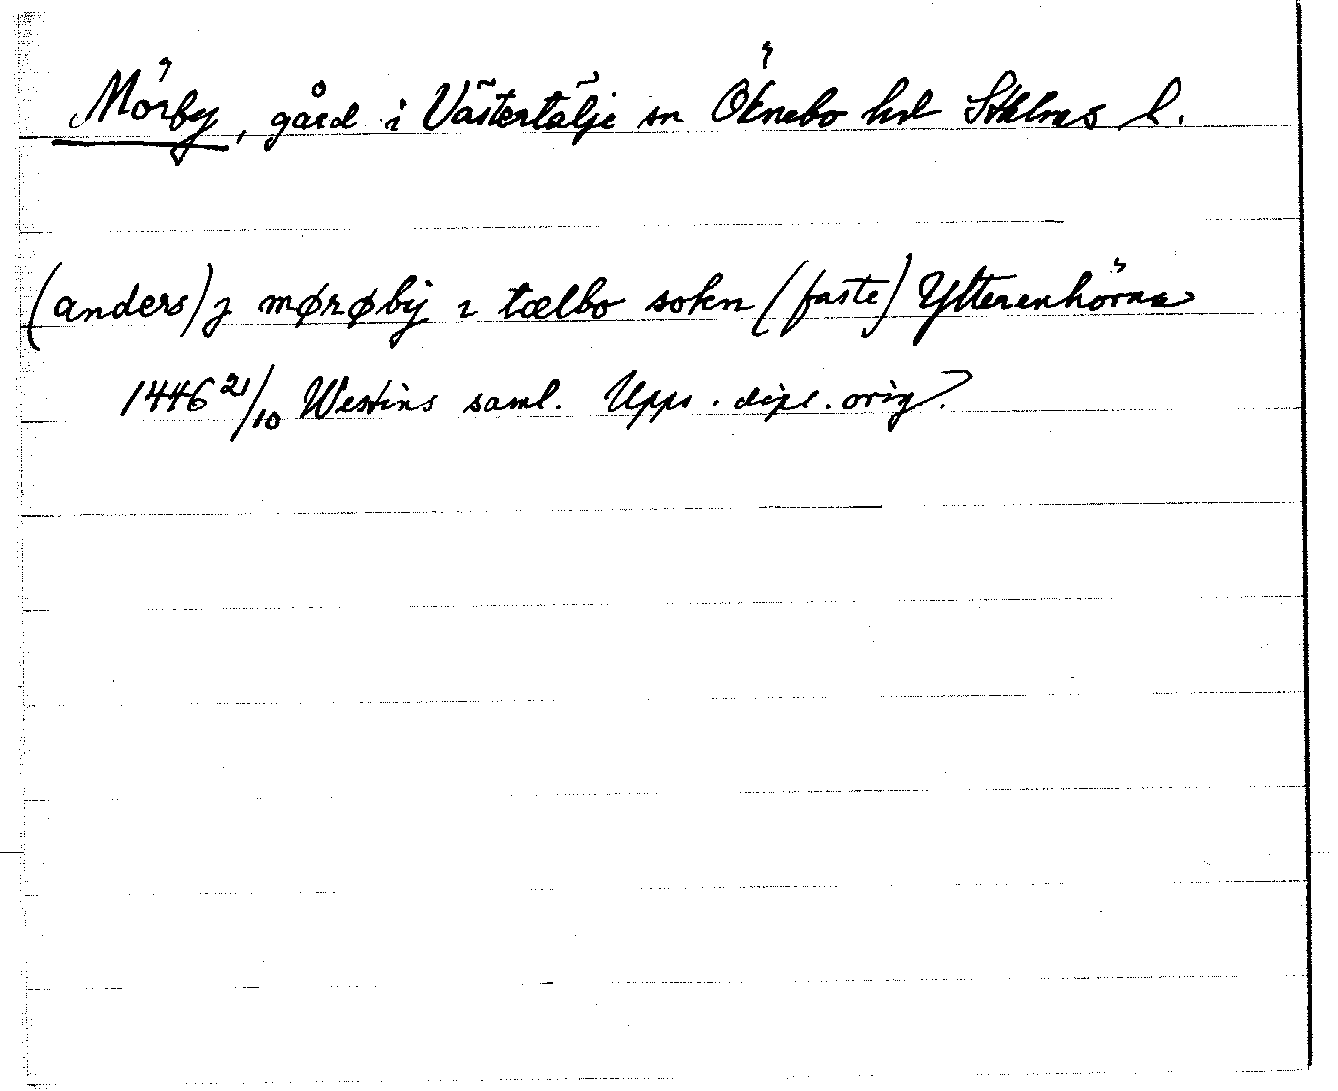 Mörby, gård i Västertälje sn Öknebo hd Sthlms l.
(anders) j mørøbÿ i tælbo sokn (faste) Ytterenhörna
1446 21/10 Westins saml. Upps. dipl. orig.